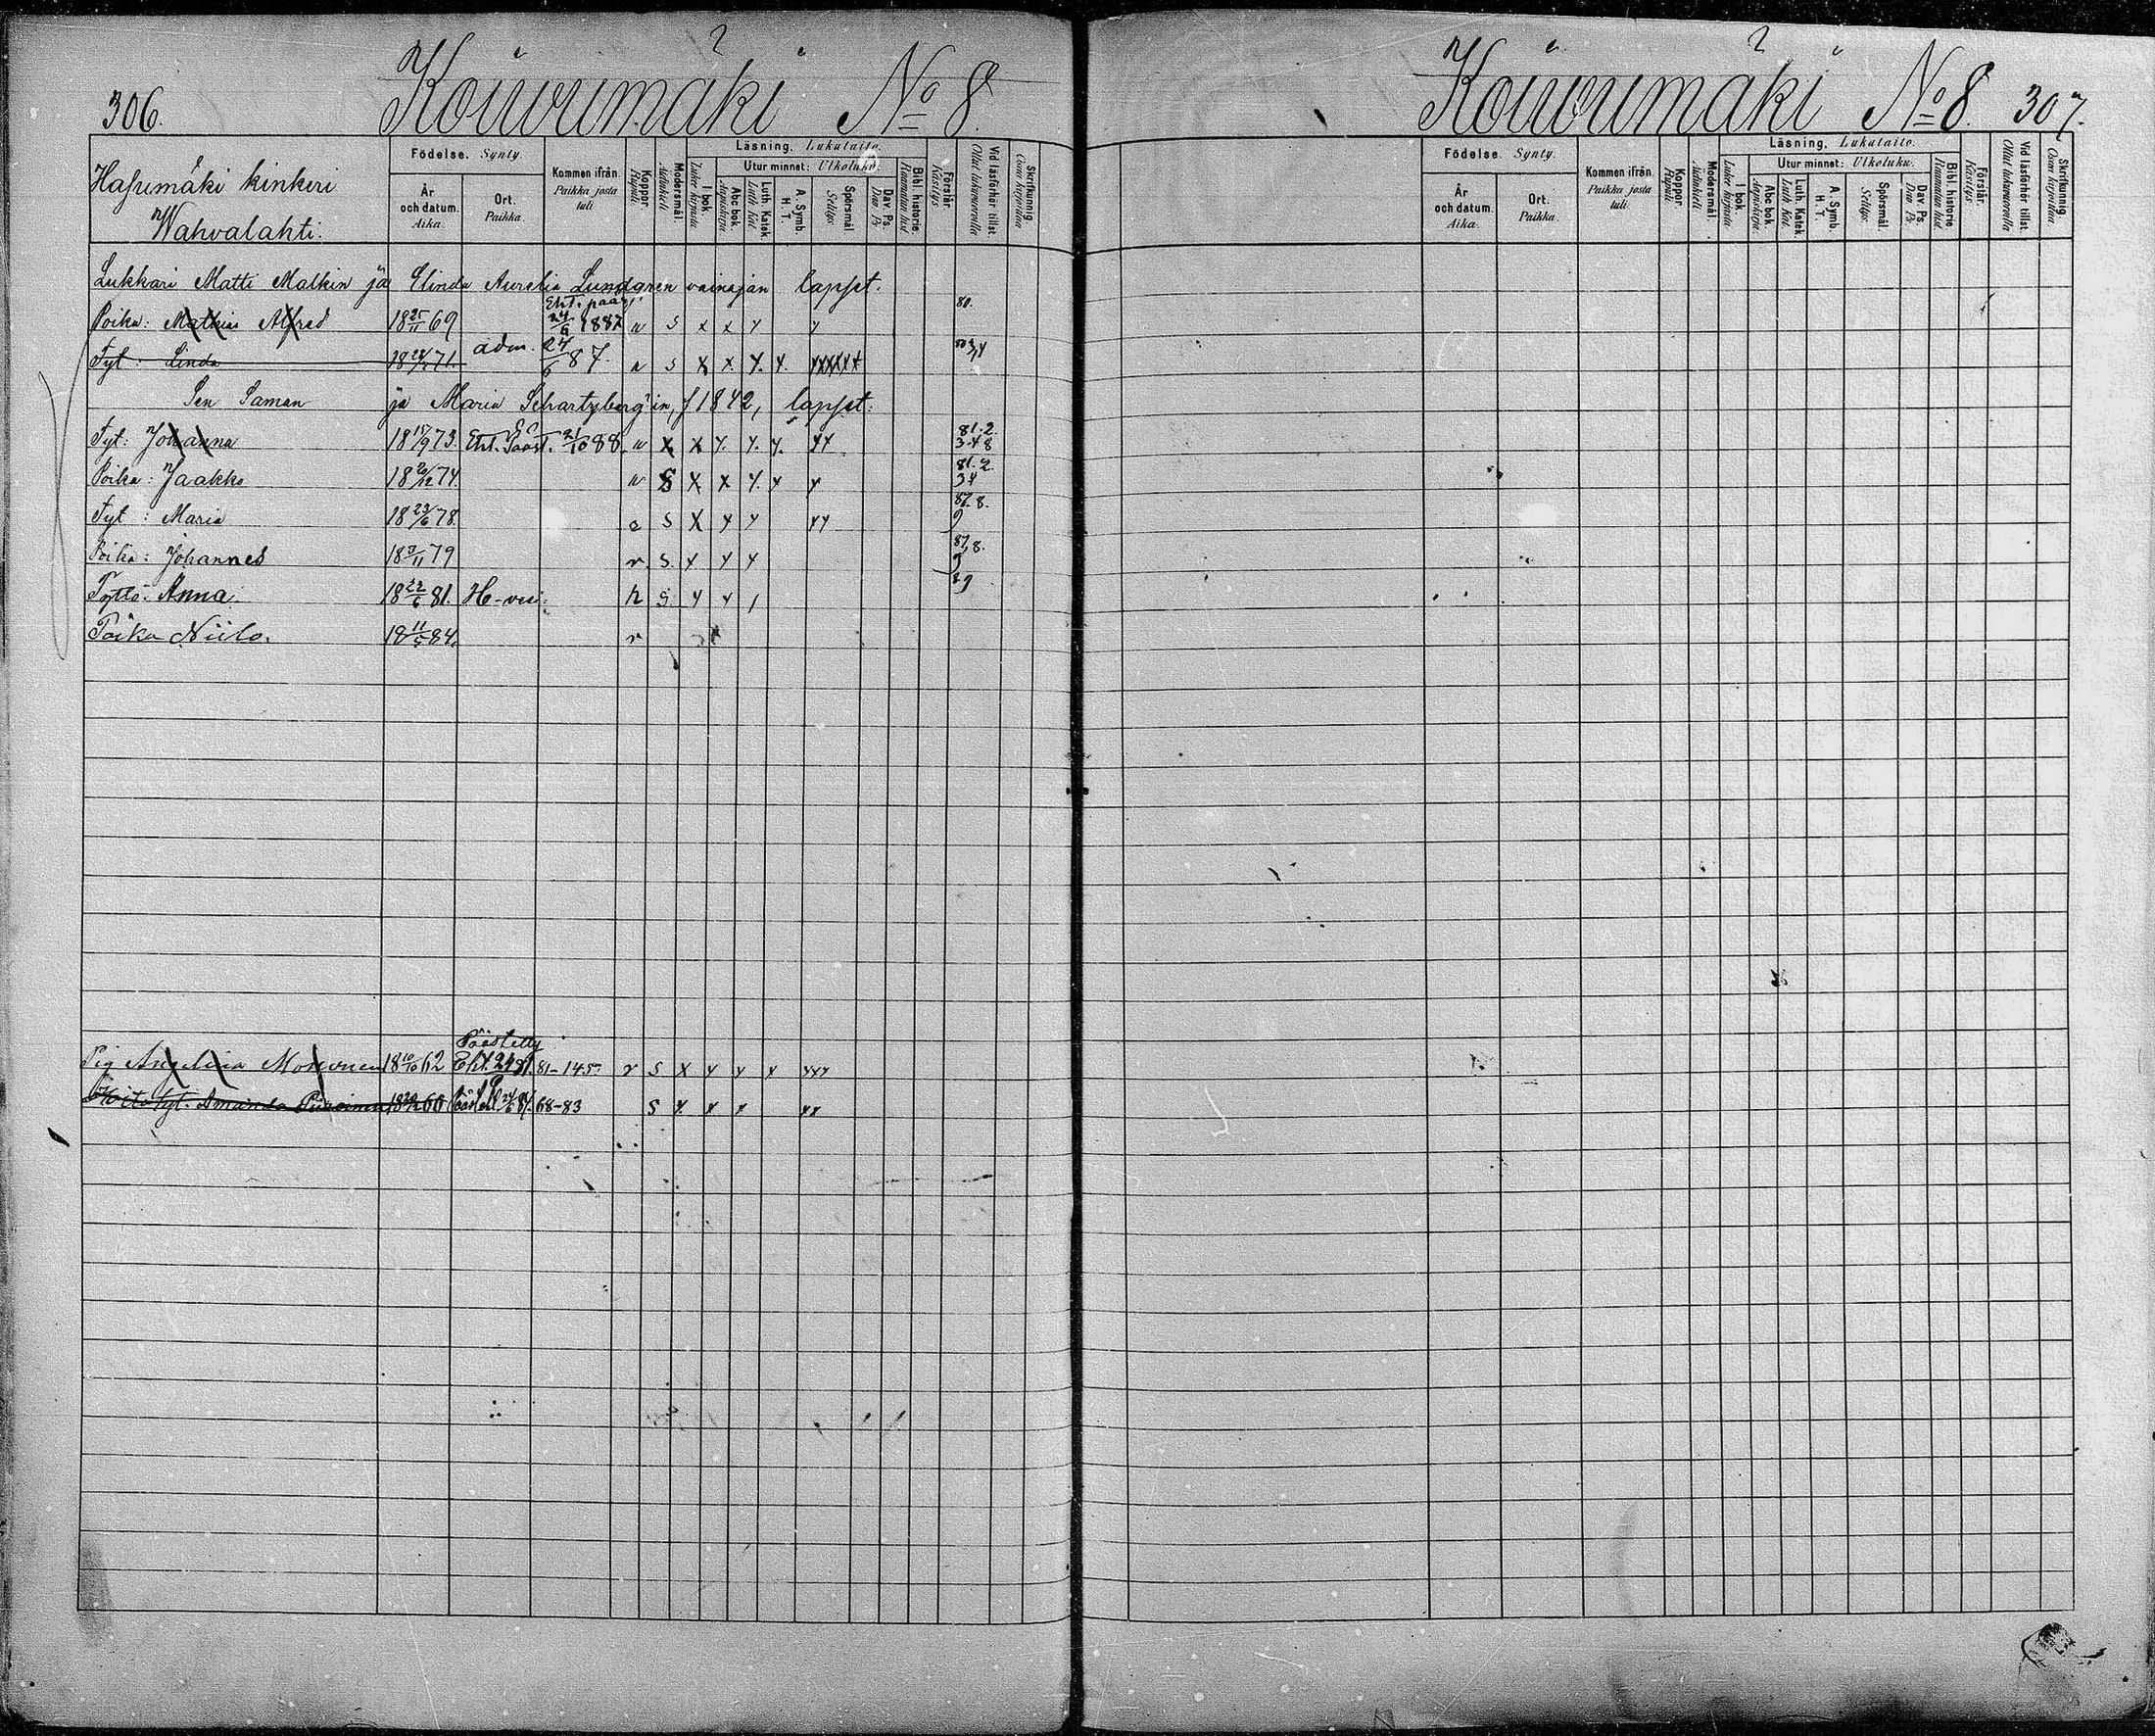 306. Koiwumäki No 8.
Hasumäki kinkeri
Wahvalahti.
Födelse. Synty.
År och datum. Aika.
Ort. Paikka.
Kommen ifrån. Paikka josta tuli
Koppor. Rupuli
Modersmål. Äidinkieli
Läsning. Lukutaito.
I bok. Lukee kirjasta
Utur minnet: Ulkoluku.
Abc bok. Aapiskirja
Luth. Katek. Luth Kat.
A. Symb. H. T.
Spörsmål Selitys.
Dav. Ps. Dav Ps
Bibl. historie. Raamatun hist.
Förstår. Käsitys
Vid läsförhör tillst. Ollut lukuvuorolla
Skrifkunnig. Osaa kirjoittaa
Lukkari Matti Malkin ja Elinda Aurelia Lundgren vainajan lapset.
Poika: Mathias Alfred 18 25/11 69 Eht. pääs. 24/6 1887 w s x x y y 80.
Tyt: Linda 71. adm. 24/6 87. s x x y. y.
Sen Saman ja Maria Schartzberg'in, f 1842, lapset:
Tyt: Johanna 18 15/9 73. Eht. Pääst. 21/10 88. w x x y. y. y. yy 81.2. 3.4 8
Poika: Jaakko 74. w s x x y. y y 81.2. 34
Tyt: Maria 18 23/6 78. s x y y yy 87.8. 9
Poika: Johannes 18 3/11 79 r. s. y y y 87,8. 9
Tyttö: Anna. 18 22/6 81. h s y y 89
Poika Niilo. 84. r
Pig Angelina Moisonen 18 10/10 62 Päästetty Eht. 81-145. r s x y y x yyy
Amanda 66 68-83 s y. x x yx
Koiwumäki No 8. 307.
Födelse. Synty.
År och datum. Aika.
Ort. Paikka.
Kommen ifrån. Paikka josta tuli
Koppor. Rupuli
Modersmål. Äidinkieli
Läsning. Lukutaito.
I bok. Lukee kirjasta
Utur minnet: Ulkoluku.
Abc bok. Aapiskirja.
Luth. Katek. Luth Kat.
A. Symb. H. T.
Spörsmål. Selitys.
Dav. Ps. Dav Ps
Bibl. historie Raamatun hist.
Förstår. Käsitys
Vid läsförhör tillst. Ollut lukuvuorolla
Skrifkunnig. Osaa kirjoittaa.